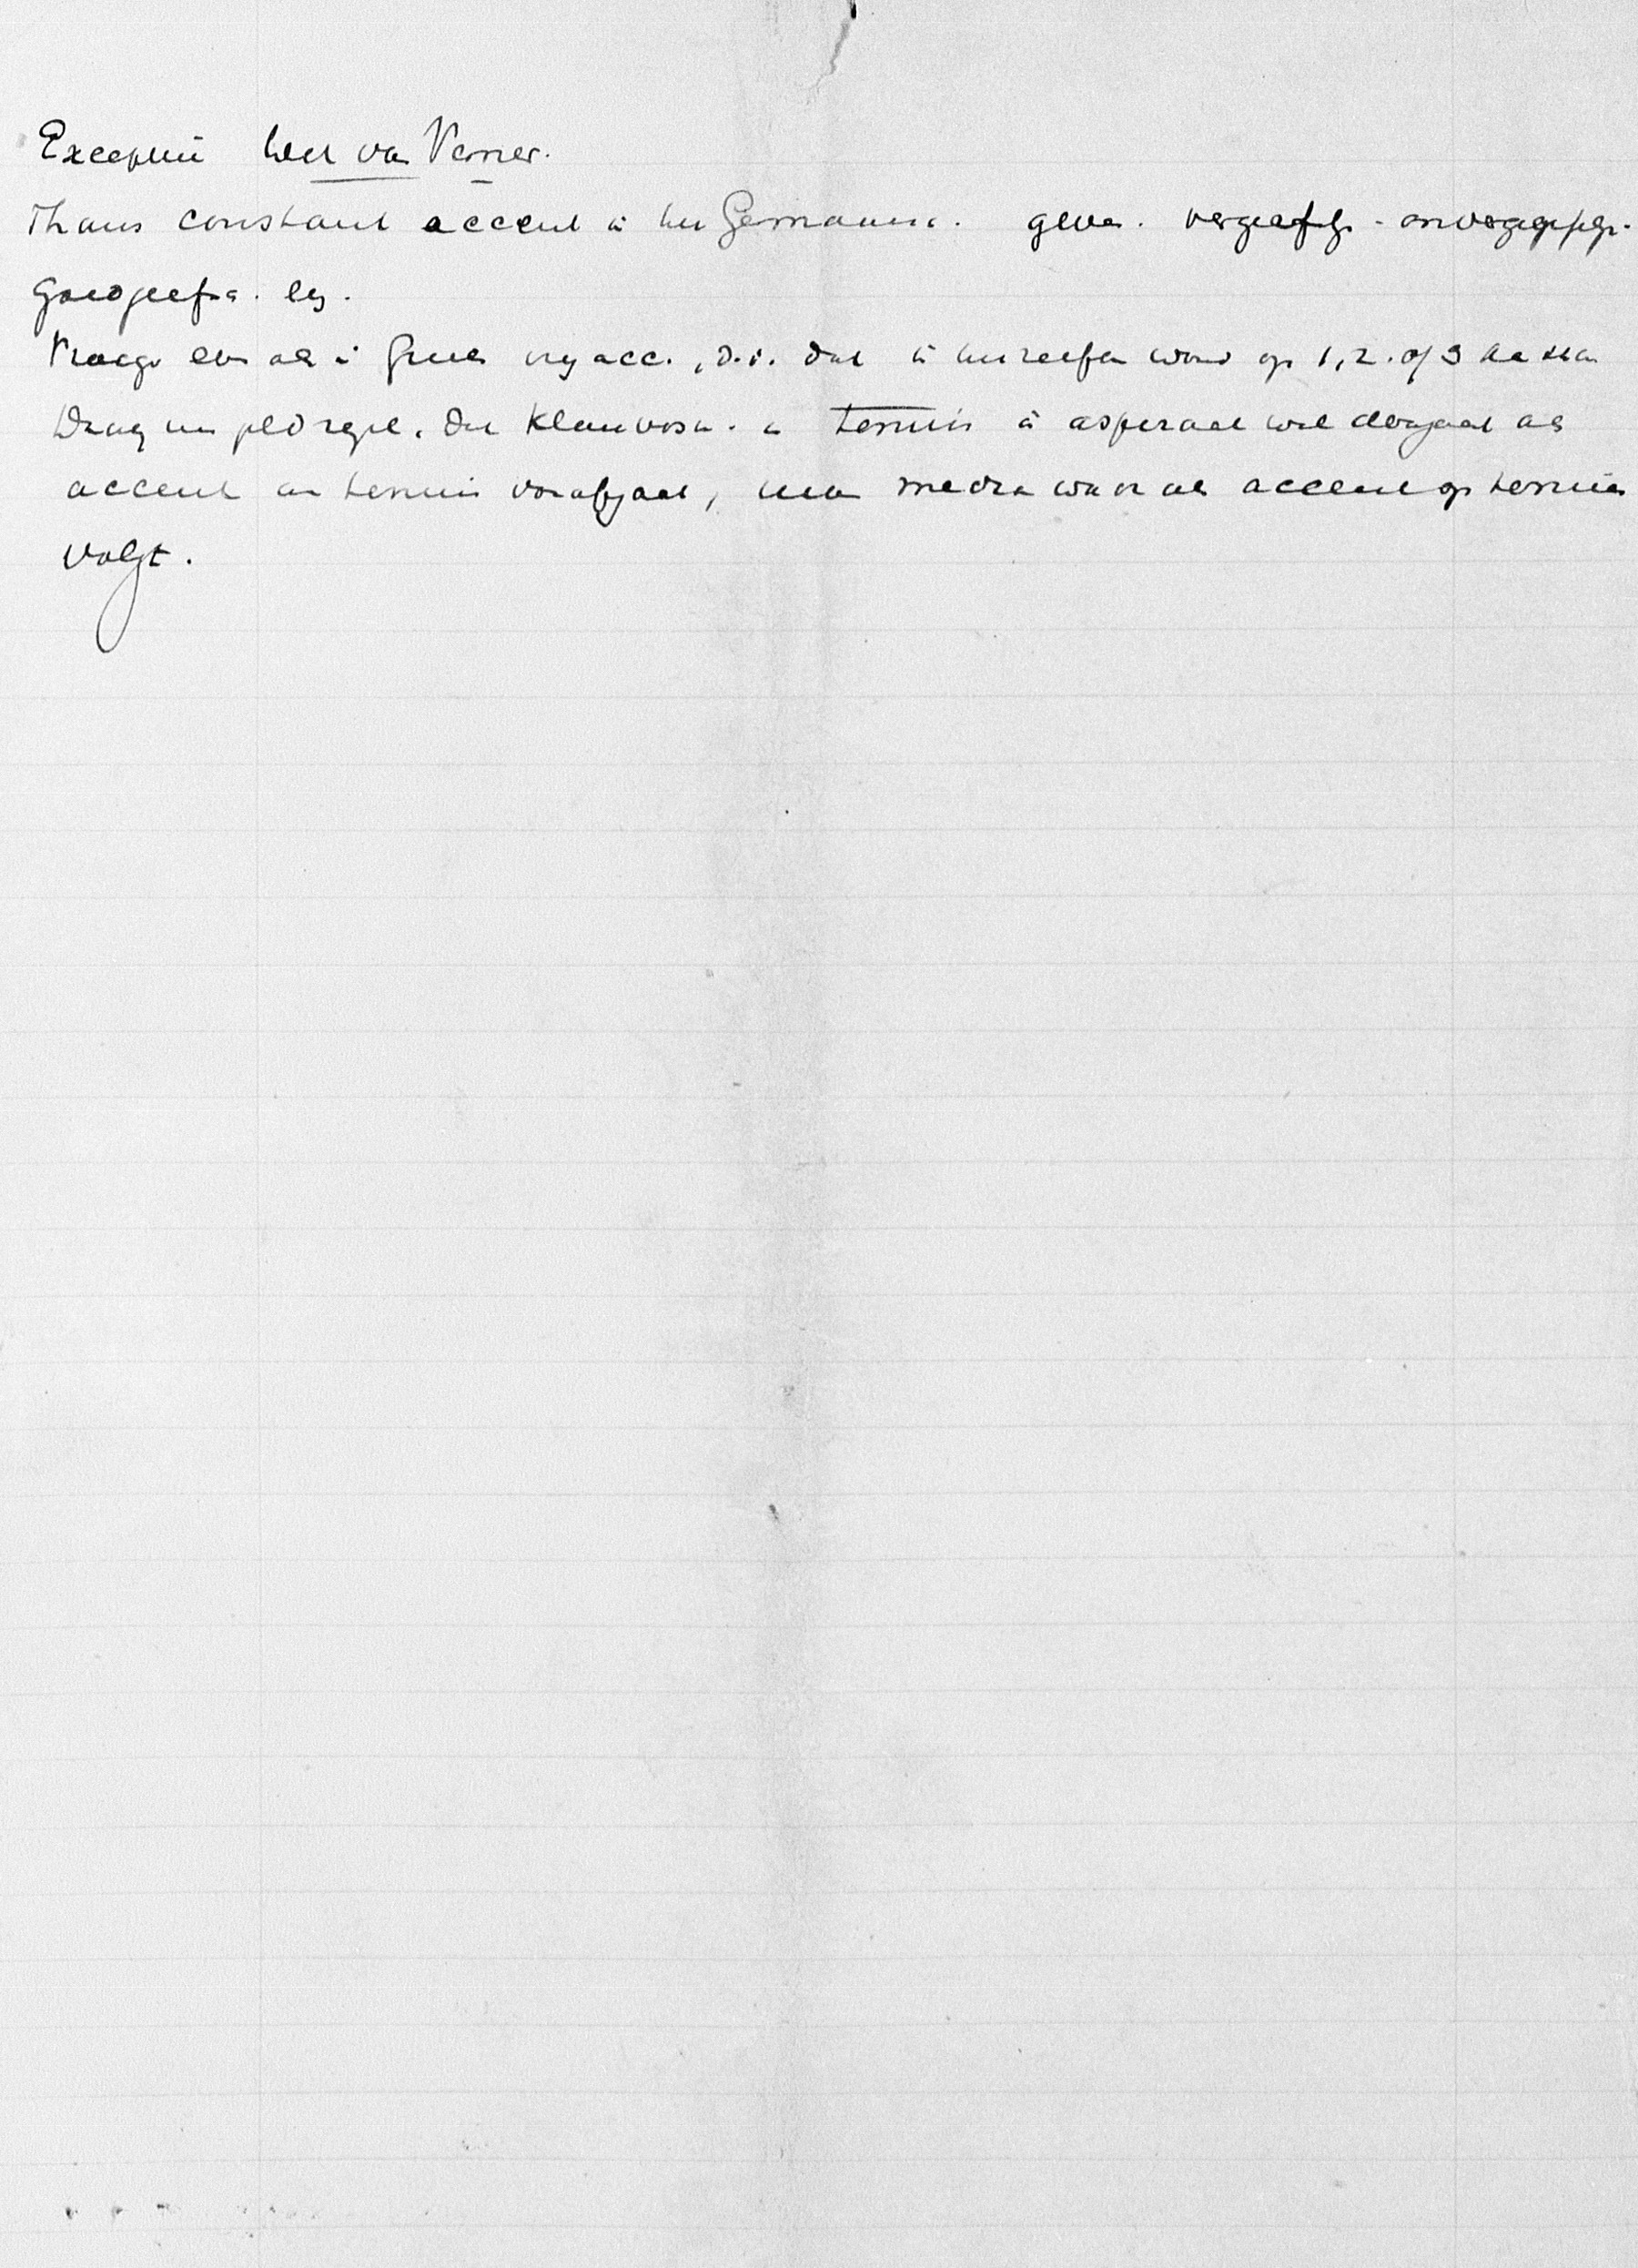 Exceptie Wet van Verner.
Thans constant accent in het Germaansch. geven. vergeeflijk - onvergeeflijk.
Goedgeefsch. enz.
Vroeger even als in Grieksch vrij acc., d.i. dat in hetzelfde woord op 1, 2. of 3 kan staan
geldt regel, dat Klankversch. v. tenuis in aspiraat wel doorgaat als
accent aan tenuis voorafgaat, maar media wordt als accent op tenuis
volgt.